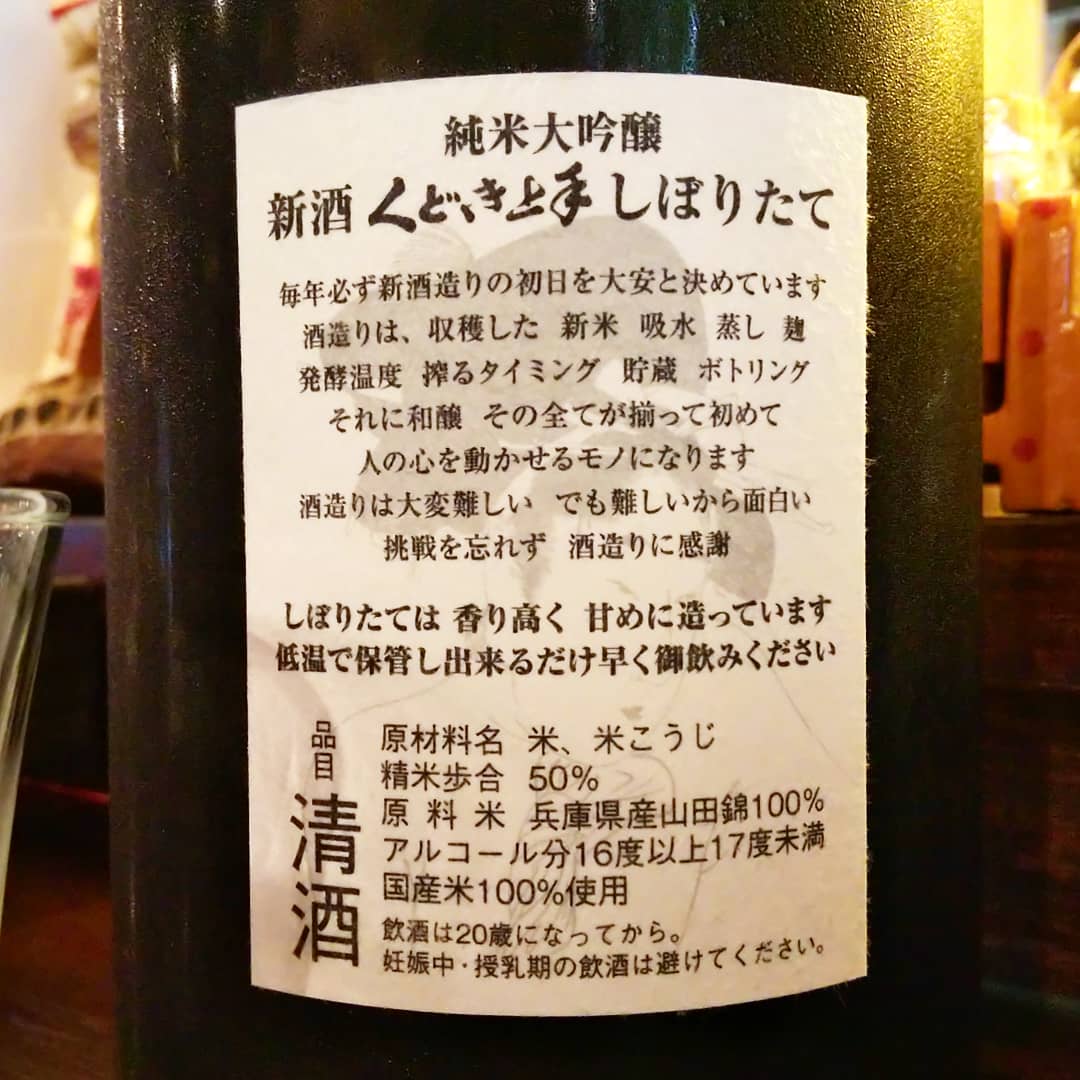 純米大吟醸
新酒 くどき上手 しぼりたて
毎年必ず新酒造りの初日を大安と決めています
酒造りは、収穫した 新米 吸水 蒸し 麹
発酵温度 搾るタイミング 貯蔵 ボトリング
それに和醸 その全てが揃って初めて
人の心を動かせるモノになります
酒造りは大変難しい でも難しいから面白い
挑戦を忘れず 酒造りに感謝
しぼりたては 香り高く 甘めに造っています
低温で保管し出来るだけ早く御飲みください
品目 清酒
原材料名 米、米こうじ
精米歩合 50%
原料米 兵庫県産山田錦100%
アルコール分16度以上17度未満
国産米100%使用
飲酒は20歳になってから。
妊娠中・授乳期の飲酒は避けてください。